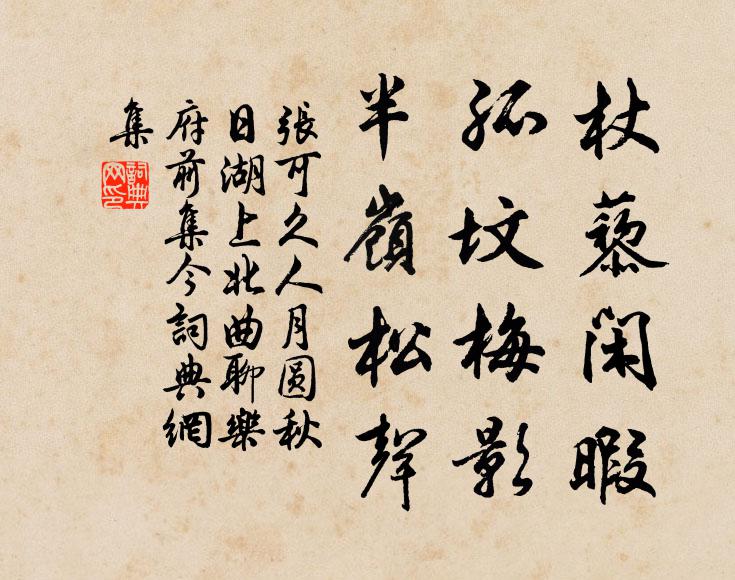 杖藜閑暇
孤墳梅影
半嶺松聲
張可久人月圓秋
日湖上北曲聊樂
府前集今詞典網
集
詞典
网印